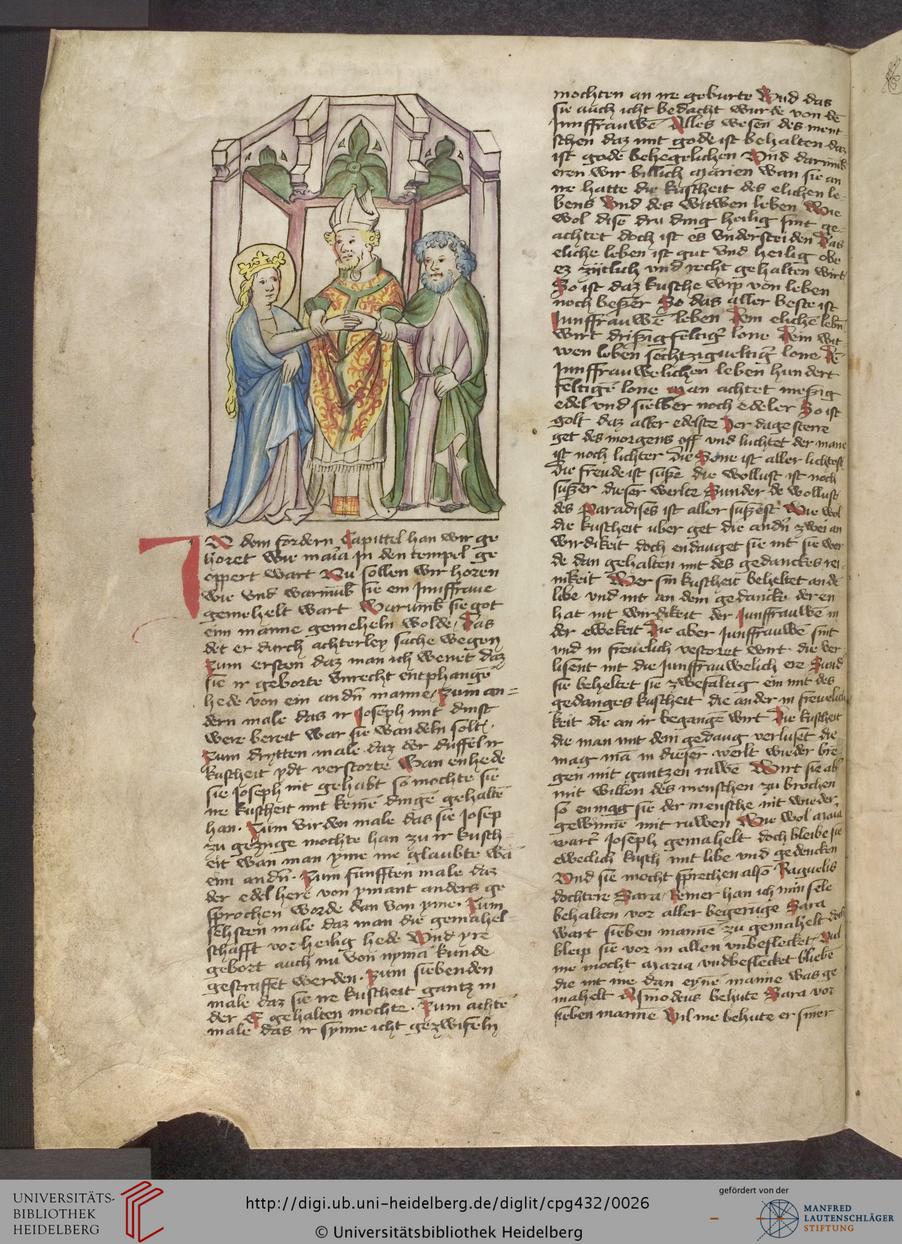 IN dem fordern Capittel han wir ge
horet wie maria In den tempel ge
oppert wart Nu sollen wir horen
wie vnd warumb sie ein Iunffrauwe
gemehelt wart Warumb sie got
eim manne gemeheln wolde / Das
det er durch achterley sache wegen
Zum ersten daz man icht wenet daz
sie ir geborte vnrecht entphangē
hede von ein andn̄ manne / Zum an=
dern male das ir Ioseph mit dinst
were bereit war sie wandeln solt
Zum drytten male daz der duffel ir
kuscheit ydt verstorte Wan enhede
sie Ioseph nit gehabt so mochte sie
ire kuscheit mit keine dinge gehaltē
han · Zum virden male das sie Iosep
zu gezuge mochte han zu ir kusch=
eit wan man yme me glaubte wā
eim andn̄ · Zum funfften male daz
der edel here von ymant anders ge
sprochen worde dan von yme · Zum
sehsten male daz man die gemahel
schafft vor heilig hede Vnd yre
gebort auch nu von nymā kunde
gestraffet werden · Zum siebenden
male daz sie ire kuscheit gantz in
der E gehalten mochte · Zum achtē
male das ir synne icht gezwifeln
mochten an ire geburte Vnd das
sie auch icht bedacht wurde von dē
Iunffrauwē Alles wesen des men
schen daz mit gode ist behalten daz
ist gode behegelichen Vnd darumb
eren wir billich Marien wan sie an
ire hatte die kuscheit des elichen le
bens Vnd des witwen leben Wie
wol dise dru ding heilig sint ge=
achtet doch ist es vnderscheiden Das
eliche leben ist gut vnd heilig obe
ez zijtlich vnd recht gehalten wirt
So ist daz kusche wip von leben
noch beßer So das aller beste ist
Iunffrauwē leben Dem elichē lebn̄
wirt drißigfeltig lone Dem wit
wen leben sechtzigueltig lone De
Iunffrauwelichen leben hundert
feltige lone Man achtet meßig
edel vnd sielber noch edeler So ist
golt daz aller edelste Der dagesterre
get des morgens off vnd luchtet der mane
ist noch lichter Die Sone ist aller lichtest
Die freude ist suße die wollust ist noch
sußer dieser werlte Sunder de wollust
des Paradises ist aller sußest Wie wol
die kuscheit uber get die andn̄ zwei an
wirdikeit doch endauget sie nit sie wer
de dan gehalten mit des gedanckes rei
nikeit Wer sin kuscheit beheltet an de
libe vnd nit an dem gedancke der en
hat nit wirdikeit der Iunffrauwē in
der ewekeit Die aber Iunffrauwē sint
vnd in freuelich verstoret wirt die ver
lisent nit die Iunffrauwelich ere Sund
sie beheltet sie zwefaltig ein mit des
gedanges kuscheit die ander in freuelich
keit die an ir begangē wirt Die kuscheit
die man mit dem gedang verluset die
mag mā in dieser werlt wieder bre
gen mit gantzen ruwē Wirt sie ab
mit willen des menschen zu brochen
so en mag sie der mensche nit wieder
gewinne mit ruwen Wie wol maria
wart Ioseph gemahelt doch bleibe sie
ewelich kusch mit libe vnd gedencken
Vnd sie mocht sprechen also Raguelis
dochtere Sara Reiner han ich min sele
behalten vor aller begeruge Sara
wart sieben manne zu gemahelt doch
bleip sie vor in allen vnbeflecket Vil
me mocht maria vnbeflecket bliebe
die nit me dan eyne manne was ge
mahelt Asmodeus behute Sara vor
sieben manne Vil me behute er siner
UNIVERSITÄTS-
BIBLIOTHEK
HEIDELBERG
http://digi.ub.uni-heidelberg.de/diglit/cpg432/0026
© Universitätsbibliothek Heidelberg
gefördert von der
MANFRED
LAUTENSCHLÄGER
STIFTUNG